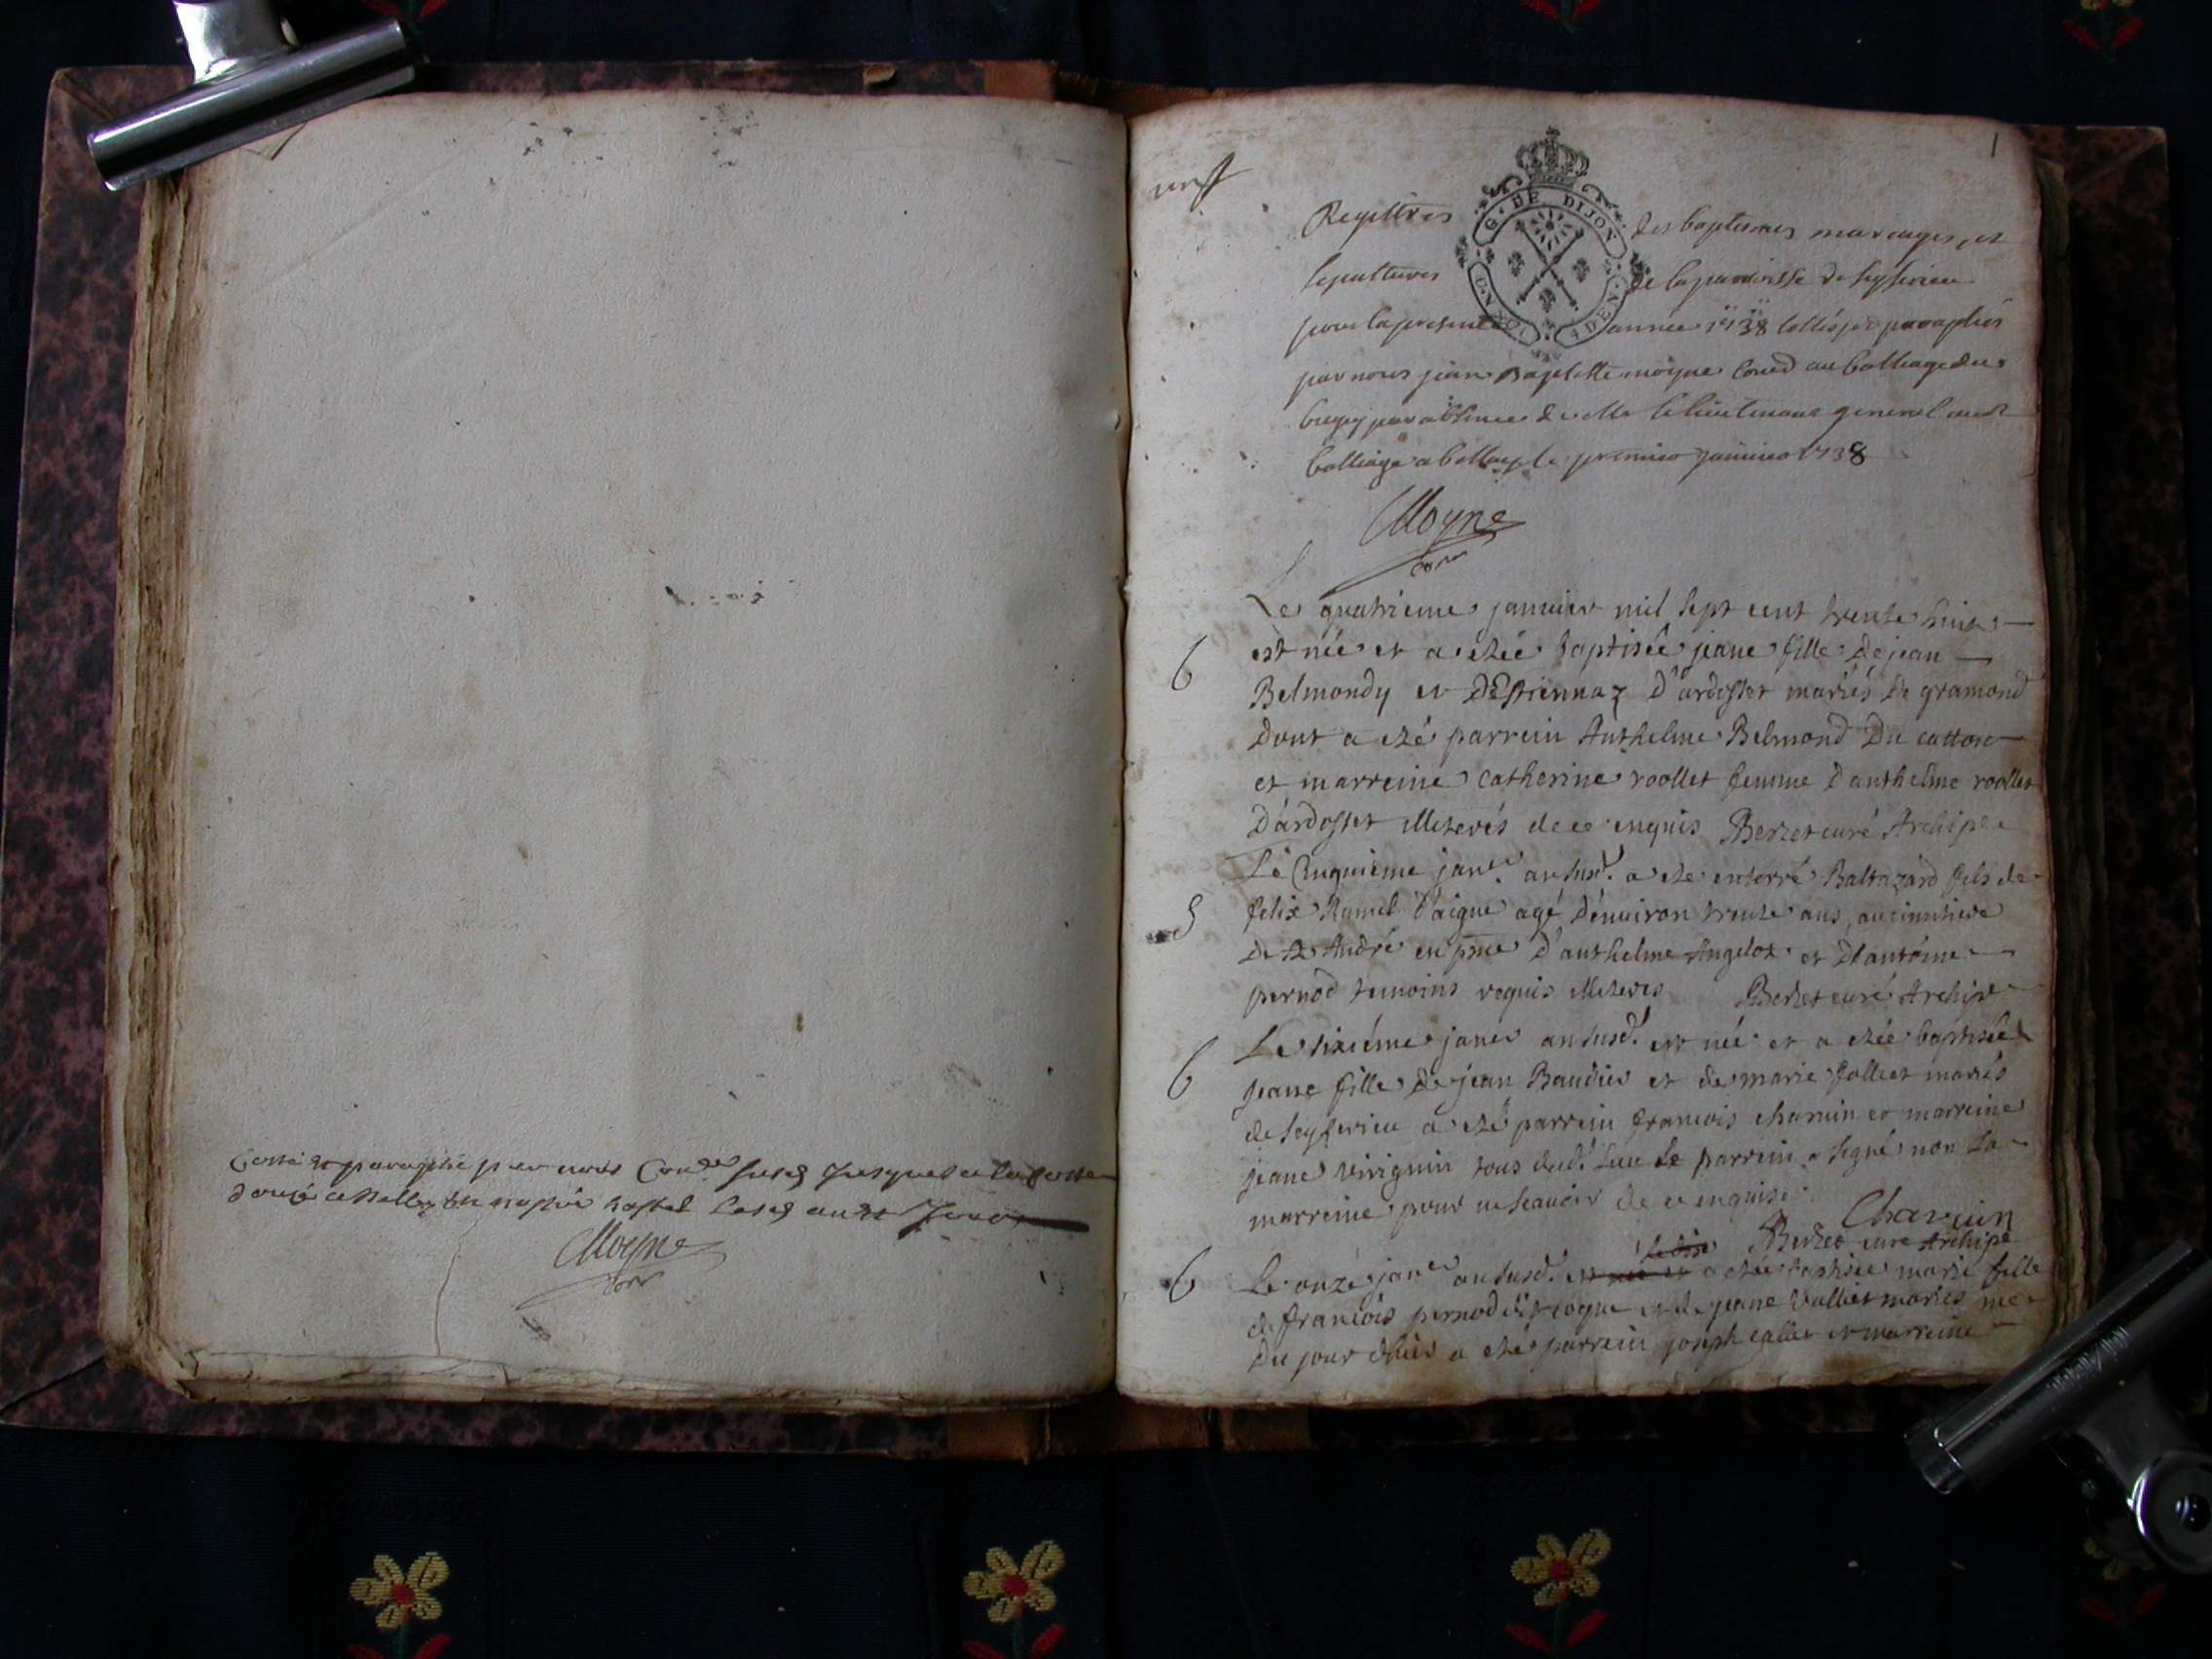 Cotté et paraphé par nous Con.er susd jusques a la feuille
douze a Belley
Moyne
1
Registres des baptesmes mariages et
sepultures de la parroisse de seyserieu
G. DE DIJON
pour la presente année 1738 cottés et paraphés
par nous jean Baptiste moyne Cons au balliage du
bugey par absence de Mr le lieutenant general audt
balliage a belley le premier janvier 1738
Moyne
Le quatrieme januier mil sept cent trente huit
6
est née et a etée baptisée jeane fille de jean
Belmondy et d'Estiennaz d'ardosset mariés de gramond
dont a eté parrein Anthelme Belmond du catton
et marreine catherine roollet femme d'anthelme roollet
D'ardosset illiterés de ce enquis Berzet curé Archipe
Le Cinquieme janer. an susd. a ete enterré Baltazard fils de
S
felix Ramel d'aigne agé d'enuiron trente ans, au cimetiere
de St André en pnce d'anthelme Angelot et d'antoine
pernod temoins requis illiteres Berzet curé Archipe
Le sixiéme janer an susd. est né et a etée baptisée
6
jeane fille de jean Baudier et de marie folliet mariés
de seyserieu a eté parrein francois charuin et marreine
jeane virignin tous dud. lieu le parrein a signé non la
marreine pour ne scauoir de ce enquise
Charuin
Berzet curé Archipe
6
Le onze janer an susd. est né et a etée baptisée marie fille
de francois pernod dit cogne et de jeane Valliet mariés née
du jour d'hier a eté parrein joseph callet et marreine